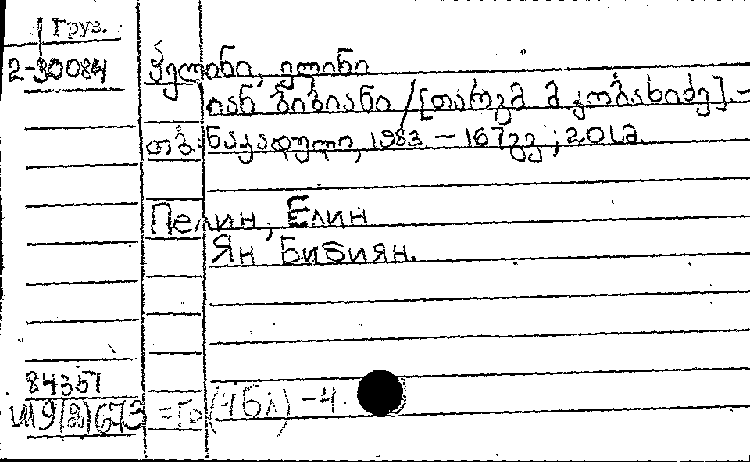 Груз.
2-30084
პელინი, ელინი
იან ბიბიანი / [თარგმ. მ. კობახიძე]. -
თბ.: ნაკადული, 1983 — 167 გვ.; 20 სმ.
Пелин, Елин
Ян Бибиян.
84357
И9(2)673 = Гр(4Бл) - 4